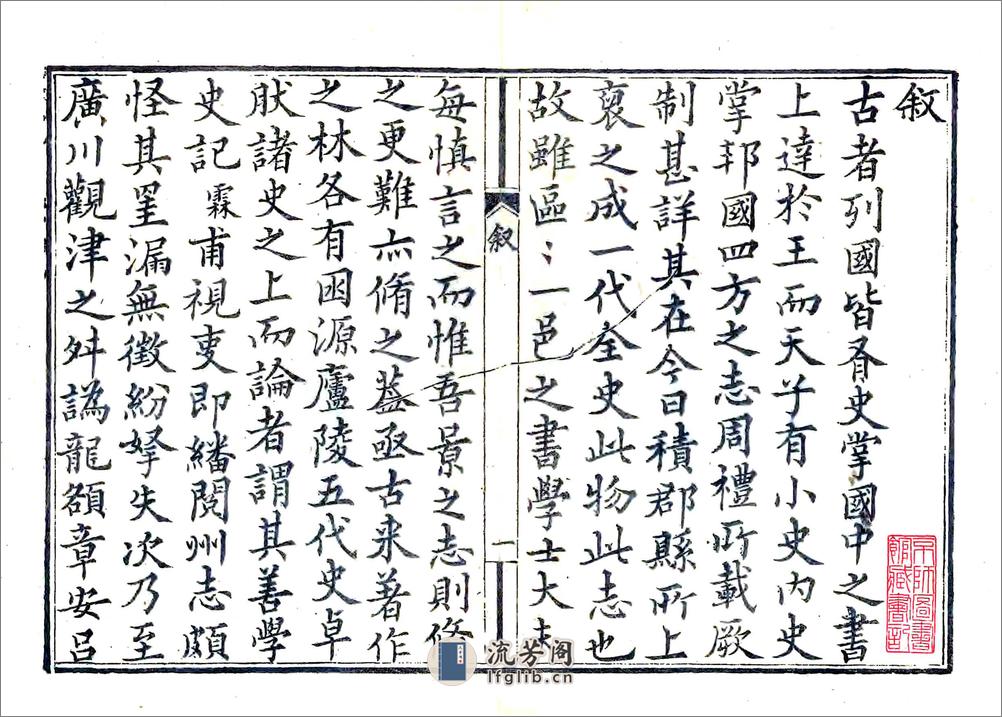 叙
古者列國皆史掌國中之書
上達於王而天子有小史內史
掌邦國四方之志周禮所載厥
制甚詳其在今日積郡縣所上
裒之成一代全史此物此志也
故雖區〻一邑之書學士大夫
叙
一
每慎言之而惟吾景之志則修
之更難亦脩之葢亟古来著作
之林各有囦源廬陵五代史卓
肰諸史之上而論者謂其善學
史記霖甫視叓即繙閱州志頗
怪其罣漏無徵紛拏失次乃至
廣川觀津之舛譌龍頟章安呂
京師圖書
館藏書記
流芳阁
lfglib.cn